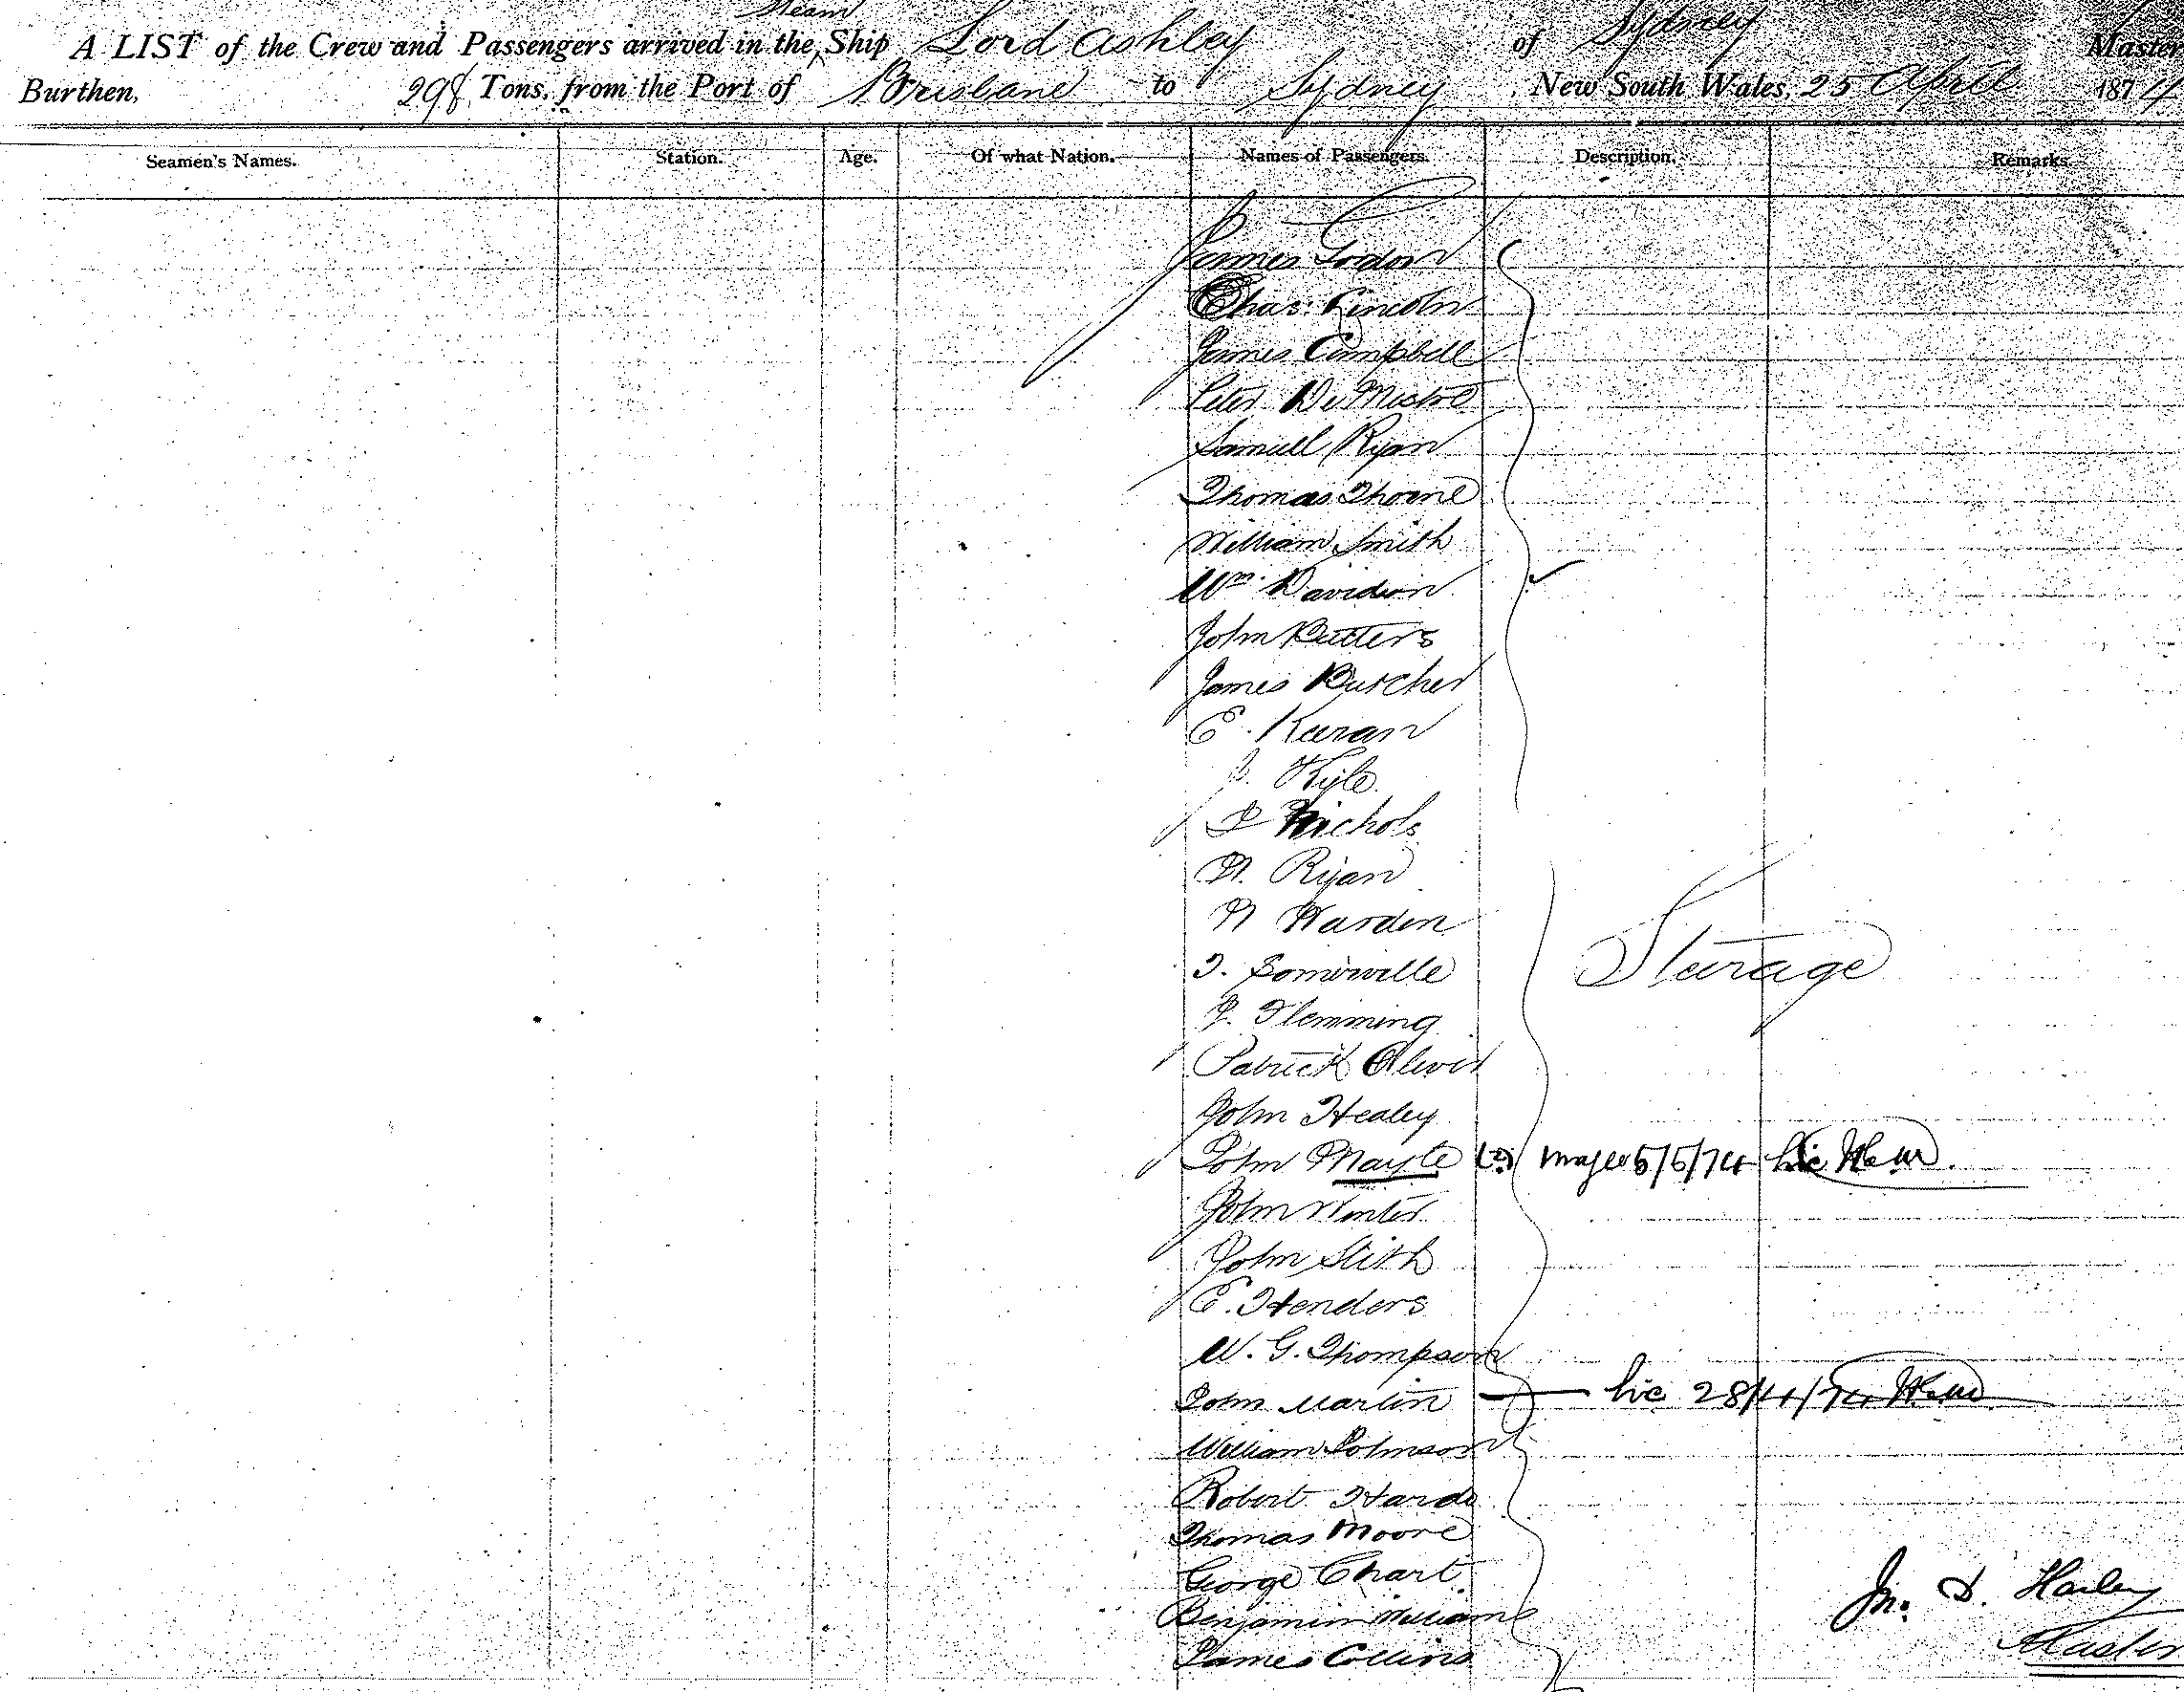 Steam
A LIST of the Crew and Passengers arrived in the Ship Lord Ashley of Sydney Master
Burthen, 298 Tons, from the Port of Brisbane to Sydney, New South Wales, 25 April 1874
Seamen's Names. Station. Age. Of what Nation. Names of Passengers. Description. Remarks.
James Gordon
Chas. Lincoln
James Campbell
Peter De Mestre
Samuel Ryan
Thomas Thorne
William Smith
Wm. Davidson
John Butters
James Burcher
E. Keeran
J. Kyle
Nichols
Ryan
Warden
T. Somerville
J. Flemming
Patrick Oliver
John Healey
John Mayte 5/5/74
John Winter
John Stith
E. Henders
W. G. Thompson
John Martin 28/4/74
William Johnson
Robert Hards
Thomas Moore
George Chart
Benjamin Williams
James Collins
Sturage
Jno. D. Harley
Master